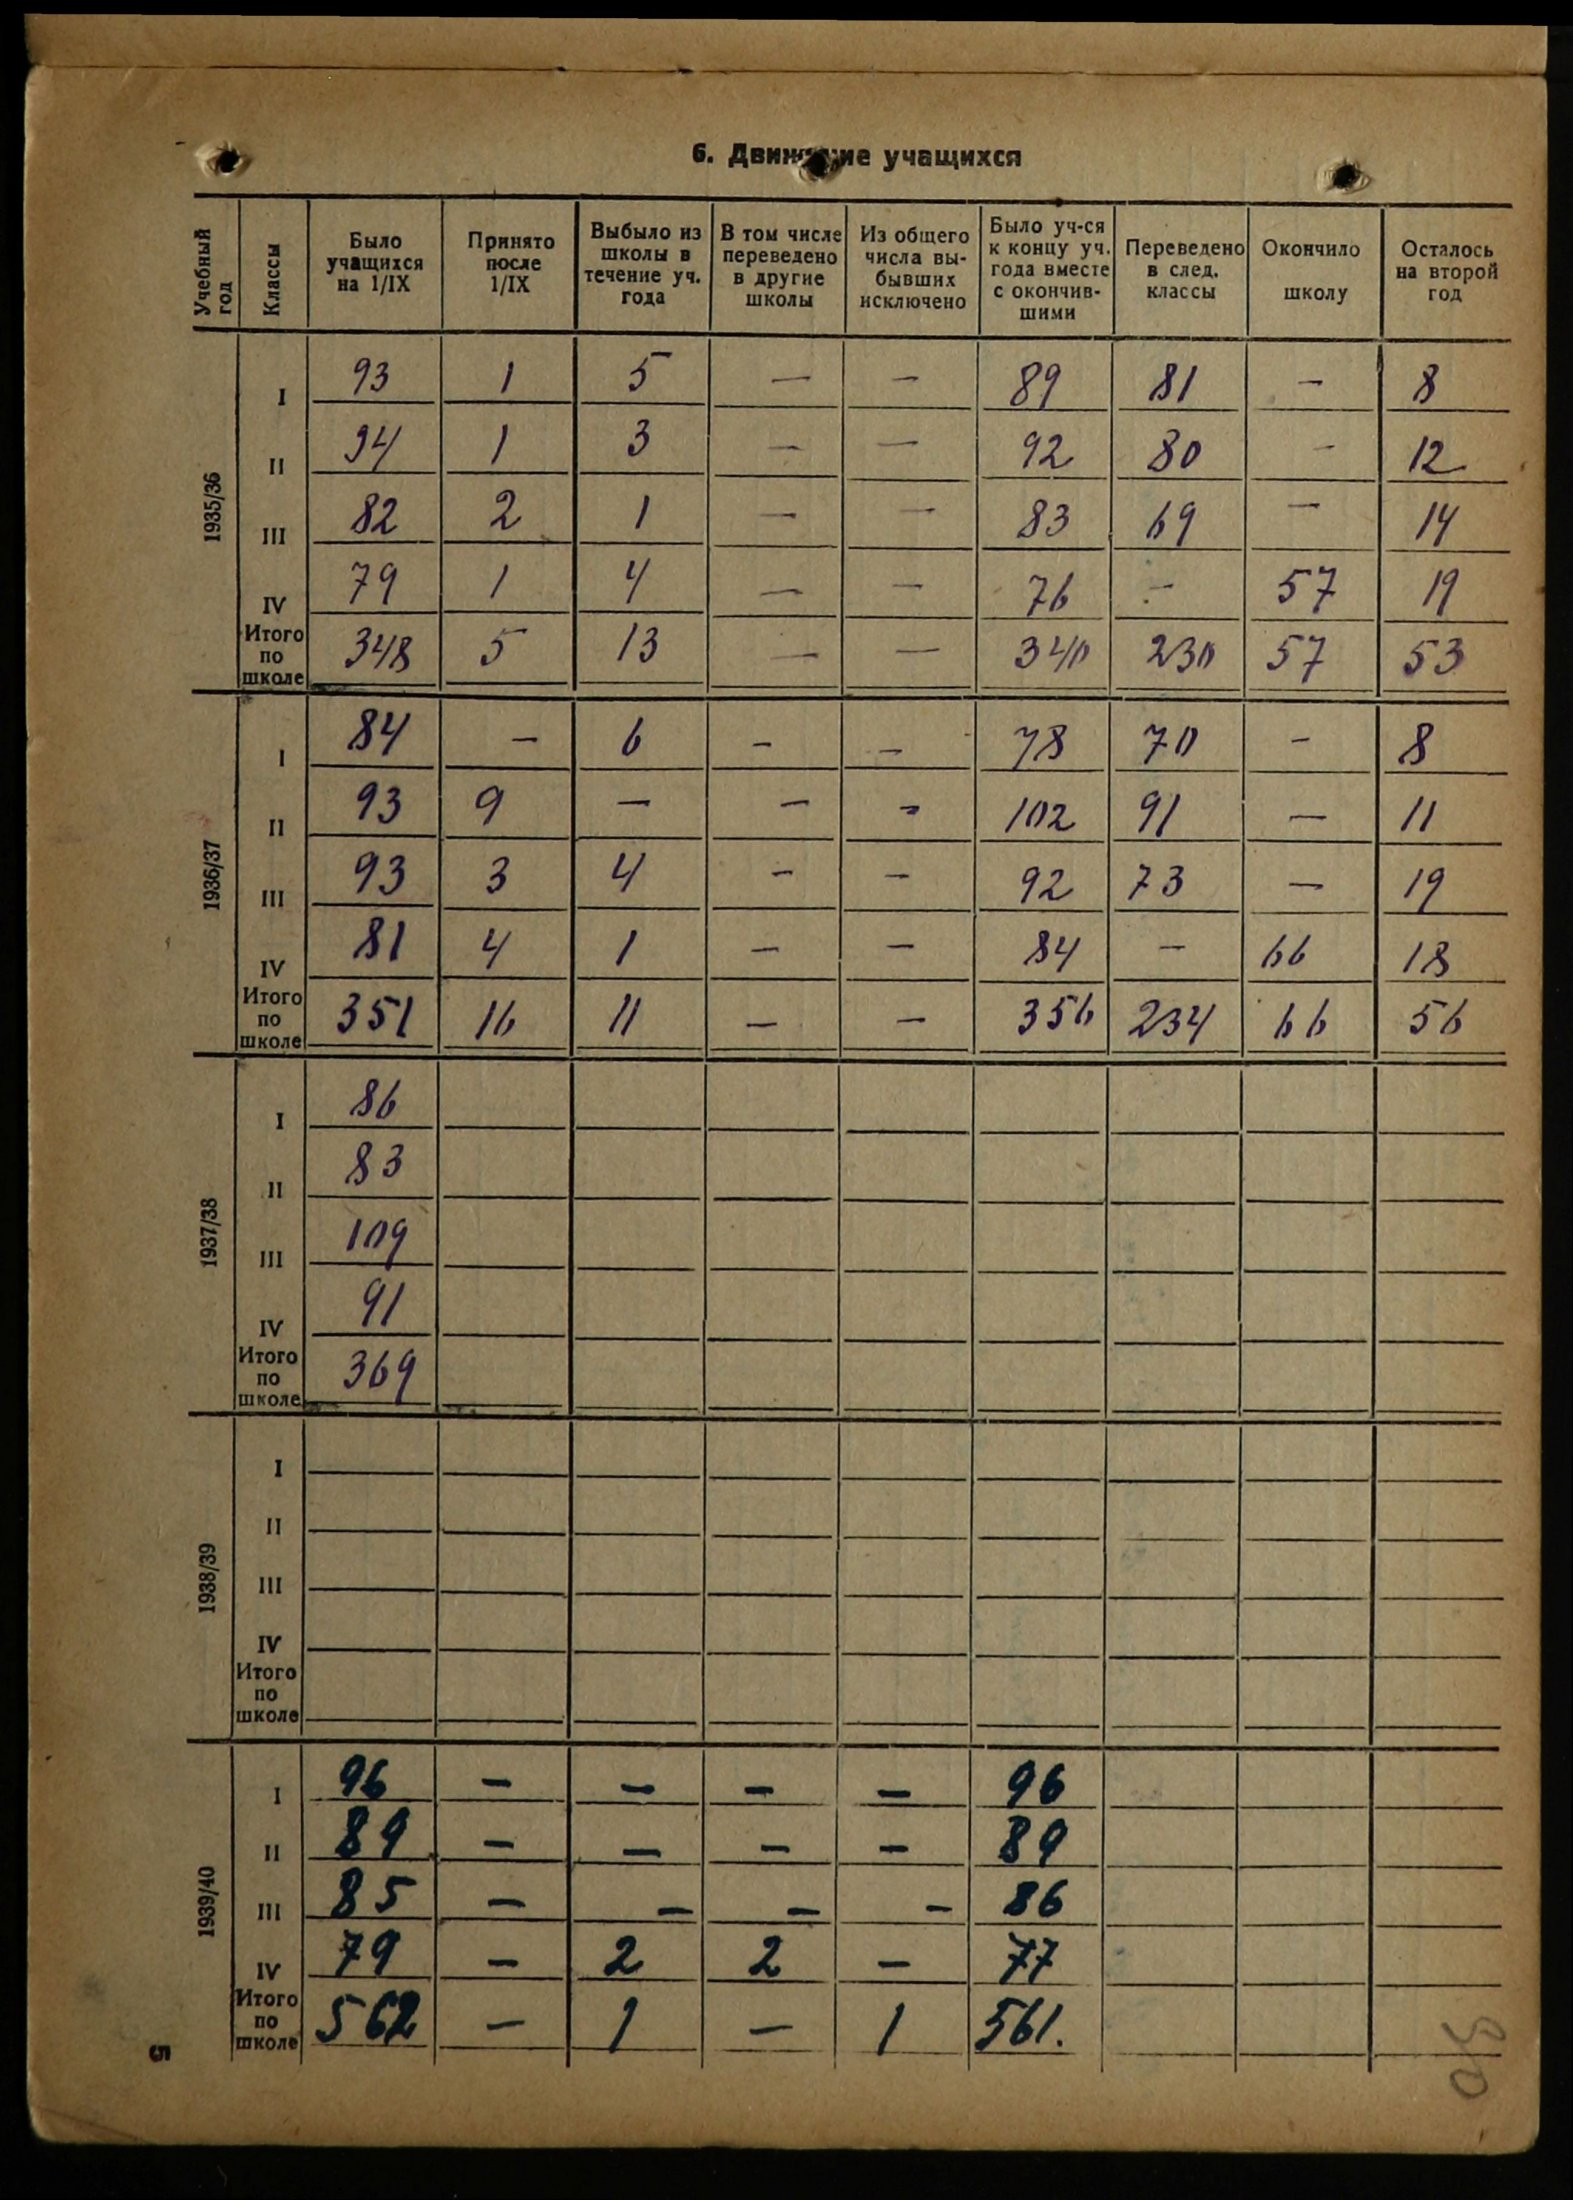 6. Движение учащихся
Учебный год | Классы | Было учащихся на 1/IX | Принято после 1/IX | Выбыло из школы в течение уч. года | В том числе переведено в другие школы | Из общего числа вы- бывших исключено | Было уч-ся к концу уч. года вместе с окончив- шими | Переведено в след. классы | Окончило школу | Осталось на второй год
1935/36
I 93 1 5 — — 89 81 — 8
II 94 1 3 — — 92 80 — 12
III 82 2 1 — — 83 69 — 14
IV 79 1 4 — — 76 — 57 19
Итого по школе 348 5 13 — — 340 230 57 53
1936/37
I 84 — 6 — — 78 70 — 8
II 93 9 — — — 102 91 — 11
III 93 3 4 — — 92 73 — 19
IV 81 4 1 — — 84 — 66 18
Итого по школе 351 16 11 — — 356 234 66 56
1937/38
I 86
II 83
III 109
IV 91
Итого по школе 369
1938/39
I
II
III
IV
Итого по школе
1939/40
I 96 — — — — 96
II 89 — — — — 89
III 85 — — — — 86
IV 79 — 2 2 — 77
Итого по школе 562 — 1 — 1 561.
5